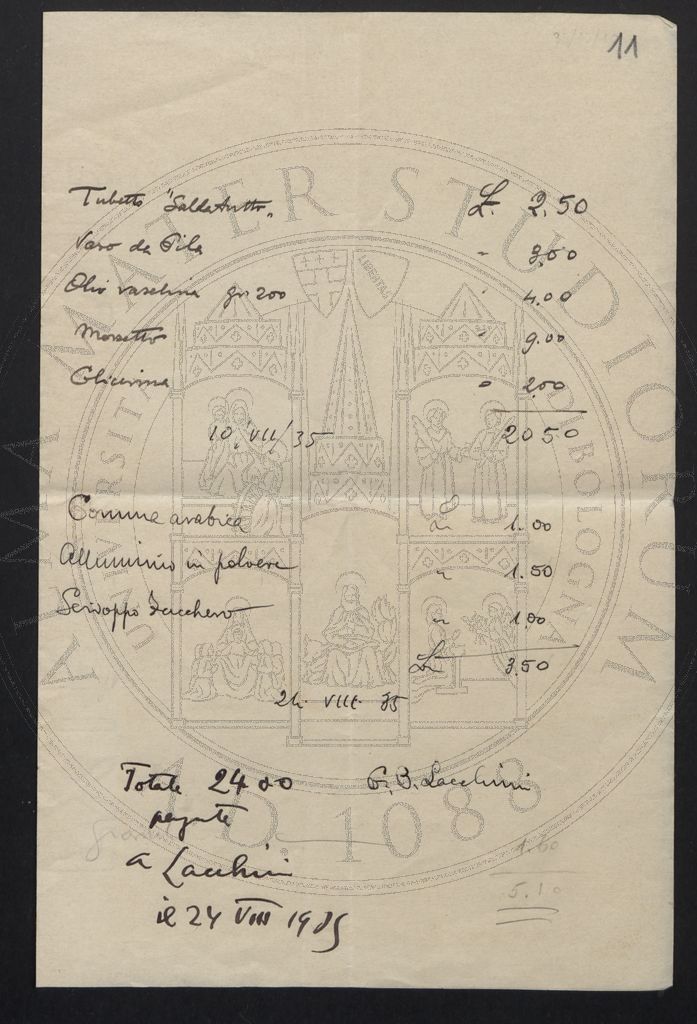 11
Tubetto "Saldatutto" L. 2.50
Vaso da Pila " 3.00
Olio vaselina gr 200 " 4.00
Morsetto " 9.00
Glicerina " 2.00
20 50
10/VII/35
Gomma arabica " 1.00
Alluminio in polvere " 1.50
Sciroppo Zucchero " 1.00
L. 3.50
24. VIII. 35
Totale 24 00 G. B. Lacchini
pagate
a Lacchini
il 24 VIII 1935
1.60
5.10
ALMA MATER STUDIORUM
UNIVERSITA DI BOLOGNA
LIBERTAS
A.D. 1088